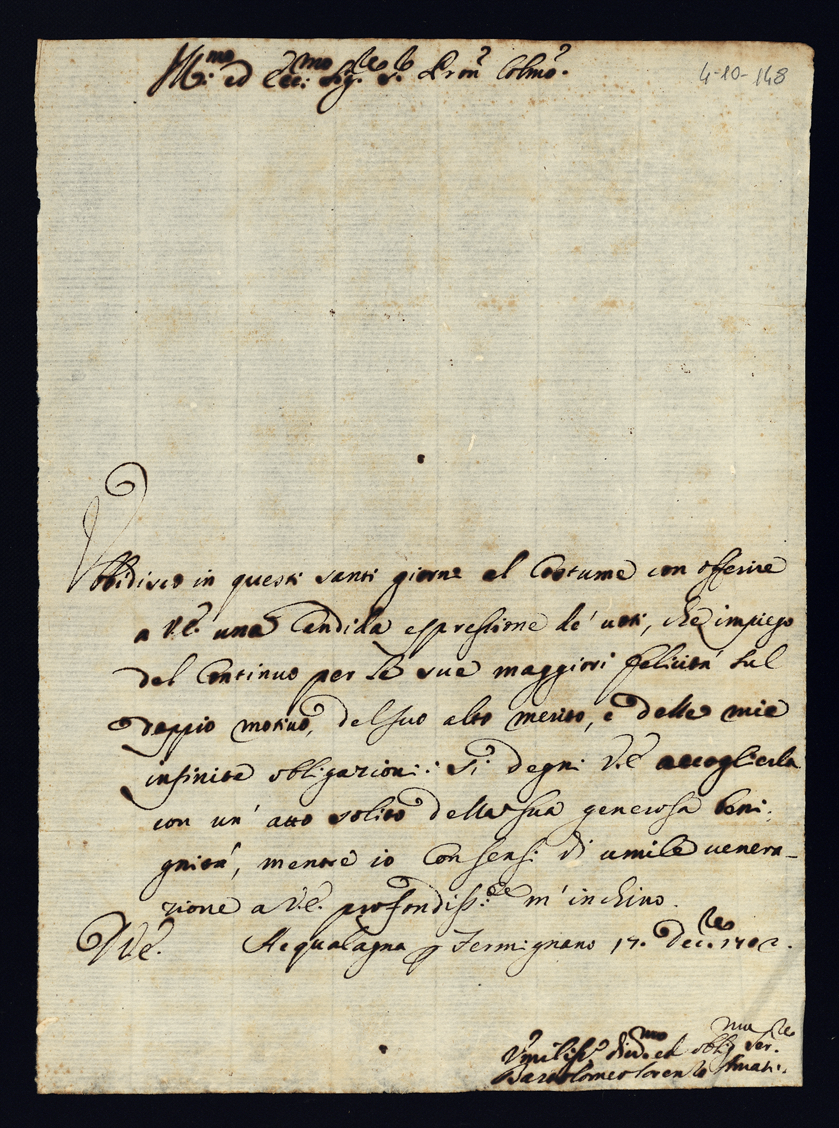 Ill.mo ed Ecc.mo Sig.re S. Pron Colmo.
4-10-148
Vbbidisco in questi santi giorni al Costume con offerire
a V.E. una Candida espressione de' uoti, che impiego
del Continuo per le sue maggiori felicità sul
doppio motiuo, del suo alto merito, e delle mie
infinite obligazioni: si degni V.E. accoglierla
con un' atto solito della sua generosa beni,
gnità, mentre io Con sensi di umile uenera-
zione a V.E. profondiss.e m' inchino.
V.E. Acqualagna p Fermignano Dec.re 170
Vmiliss.o diu.mo ed obblig.mo ser.re
Bartolomeo Lorenzo Amati.